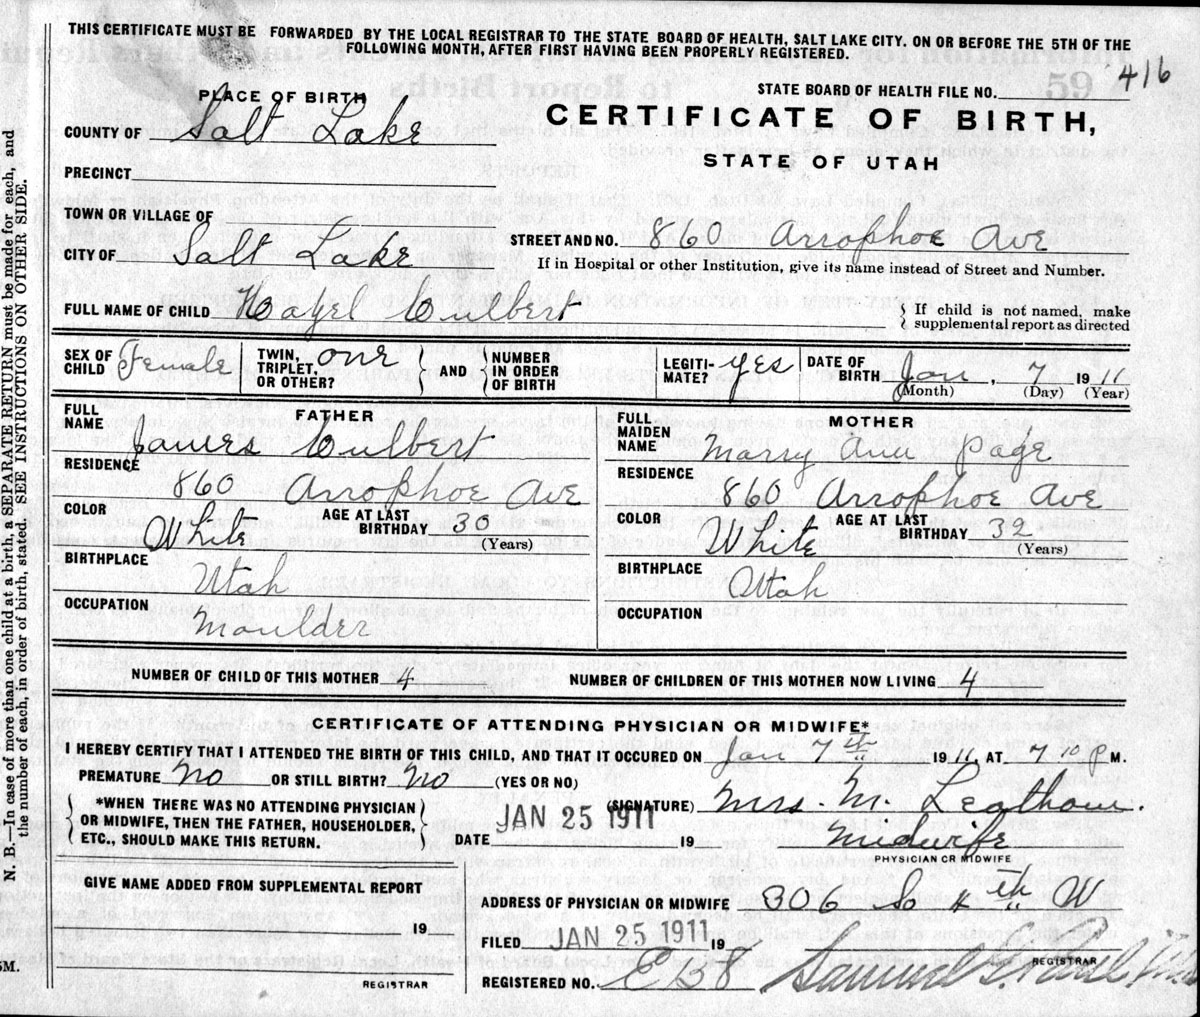 THIS CERTIFICATE MUST BE FORWARDED BY THE LOCAL REGISTRAR TO THE STATE BOARD OF HEALTH, SALT LAKE CITY. ON OR BEFORE THE 5TH OF THE
FOLLOWING MONTH, AFTER FIRST HAVING BEEN PROPERLY REGISTERED.
STATE BOARD OF HEALTH FILE NO. 416
PLACE OF BIRTH
CERTIFICATE OF BIRTH,
STATE OF UTAH
COUNTY OF Salt Lake
PRECINCT
TOWN OR VILLAGE OF
CITY OF Salt Lake
STREET AND NO. 860 Arrophoe Ave
If in Hospital or other Institution, give its name instead of Street and Number.
FULL NAME OF CHILD Hazel Culbert
If child is not named, make
supplemental report as directed
SEX OF CHILD Female
TWIN, TRIPLET, OR OTHER? one
AND
NUMBER IN ORDER OF BIRTH
LEGITIMATE? yes
DATE OF BIRTH Jan, 7 1911
(Month) (Day) (Year)
FATHER
FULL NAME James Culbert
RESIDENCE
860 Arrophoe Ave
COLOR White
AGE AT LAST BIRTHDAY 30
(Years)
BIRTHPLACE
Utah
OCCUPATION
Moulder
MOTHER
FULL MAIDEN NAME Marry Ann Page
RESIDENCE
860 Arrophoe Ave
COLOR White
AGE AT LAST BIRTHDAY 32
(Years)
BIRTHPLACE
Utah
OCCUPATION
NUMBER OF CHILD OF THIS MOTHER 4
NUMBER OF CHILDREN OF THIS MOTHER NOW LIVING 4
CERTIFICATE OF ATTENDING PHYSICIAN OR MIDWIFE*
I HEREBY CERTIFY THAT I ATTENDED THE BIRTH OF THIS CHILD, AND THAT IT OCCURED ON Jan 7th 1911 AT 7 10 P M.
PREMATURE No OR STILL BIRTH? No (YES OR NO)
*WHEN THERE WAS NO ATTENDING PHYSICIAN
OR MIDWIFE, THEN THE FATHER, HOUSEHOLDER,
ETC., SHOULD MAKE THIS RETURN.
(SIGNATURE) Mrs. M. Leatham.
JAN 25 1911
DATE 19
Midwife
PHYSICIAN OR MIDWIFE
GIVE NAME ADDED FROM SUPPLEMENTAL REPORT
19
REGISTRAR
ADDRESS OF PHYSICIAN OR MIDWIFE 306 So 4th W
FILED JAN 25 1911 19
REGISTERED NO.
Samuel G.
REGISTRAR
N. B.—In case of more than one child at a birth, a SEPARATE RETURN must be made for each, and
the number of each, in order of birth, stated. SEE INSTRUCTIONS ON OTHER SIDE.